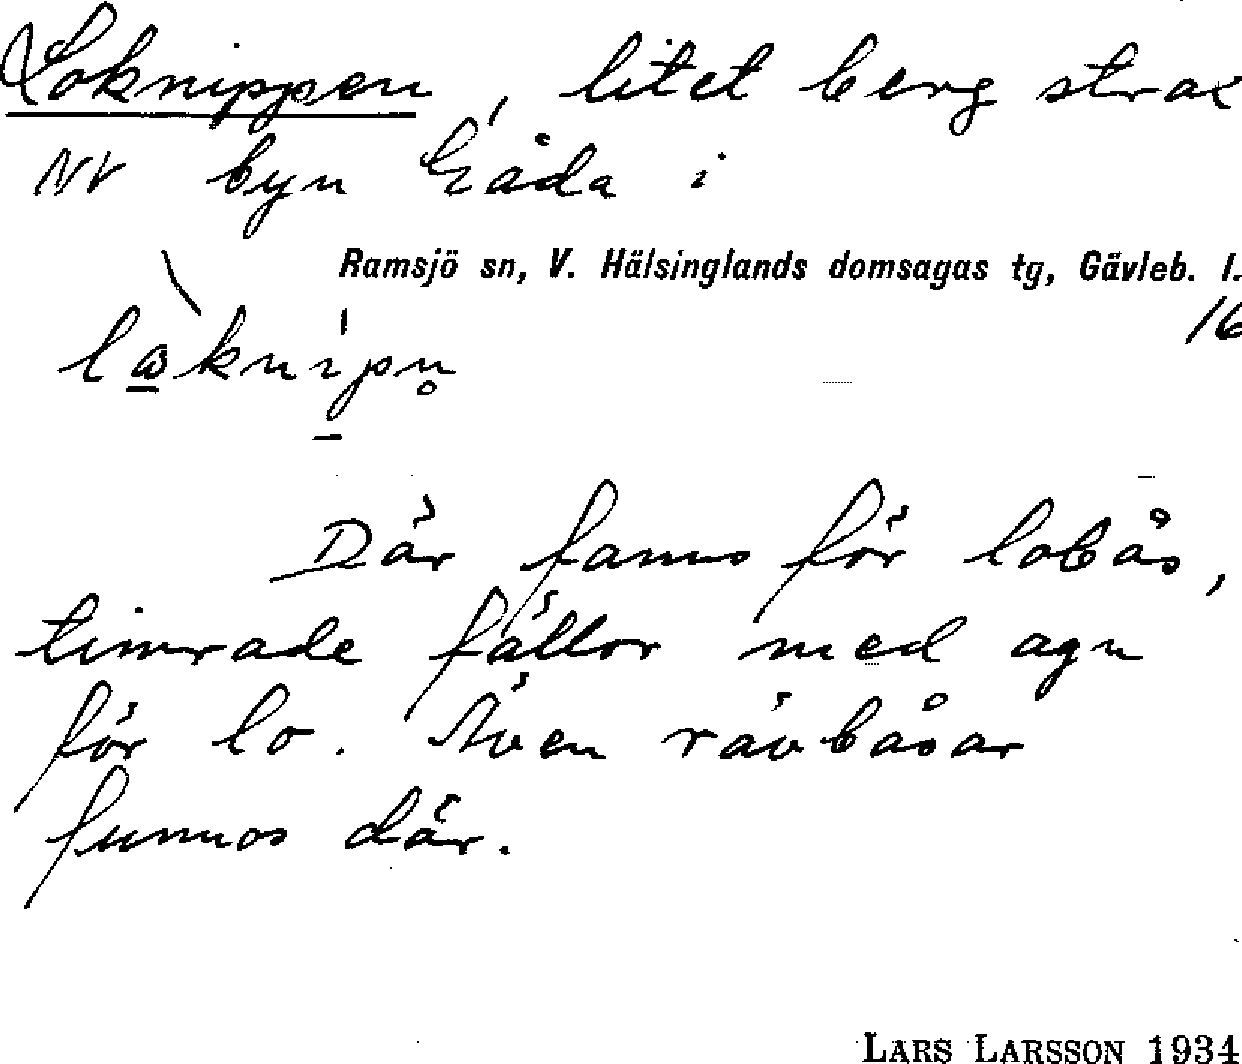 Loknippen, litet berg strax
NV byn Gåda i
Ramsjö sn, V. Hälsinglands domsagas tg, Gävleb. l.
16
Där fanns för lobås,
timrade fällor med agn
för lo. Även rävbåsar
funnos där.
LARS LARSSON 1934